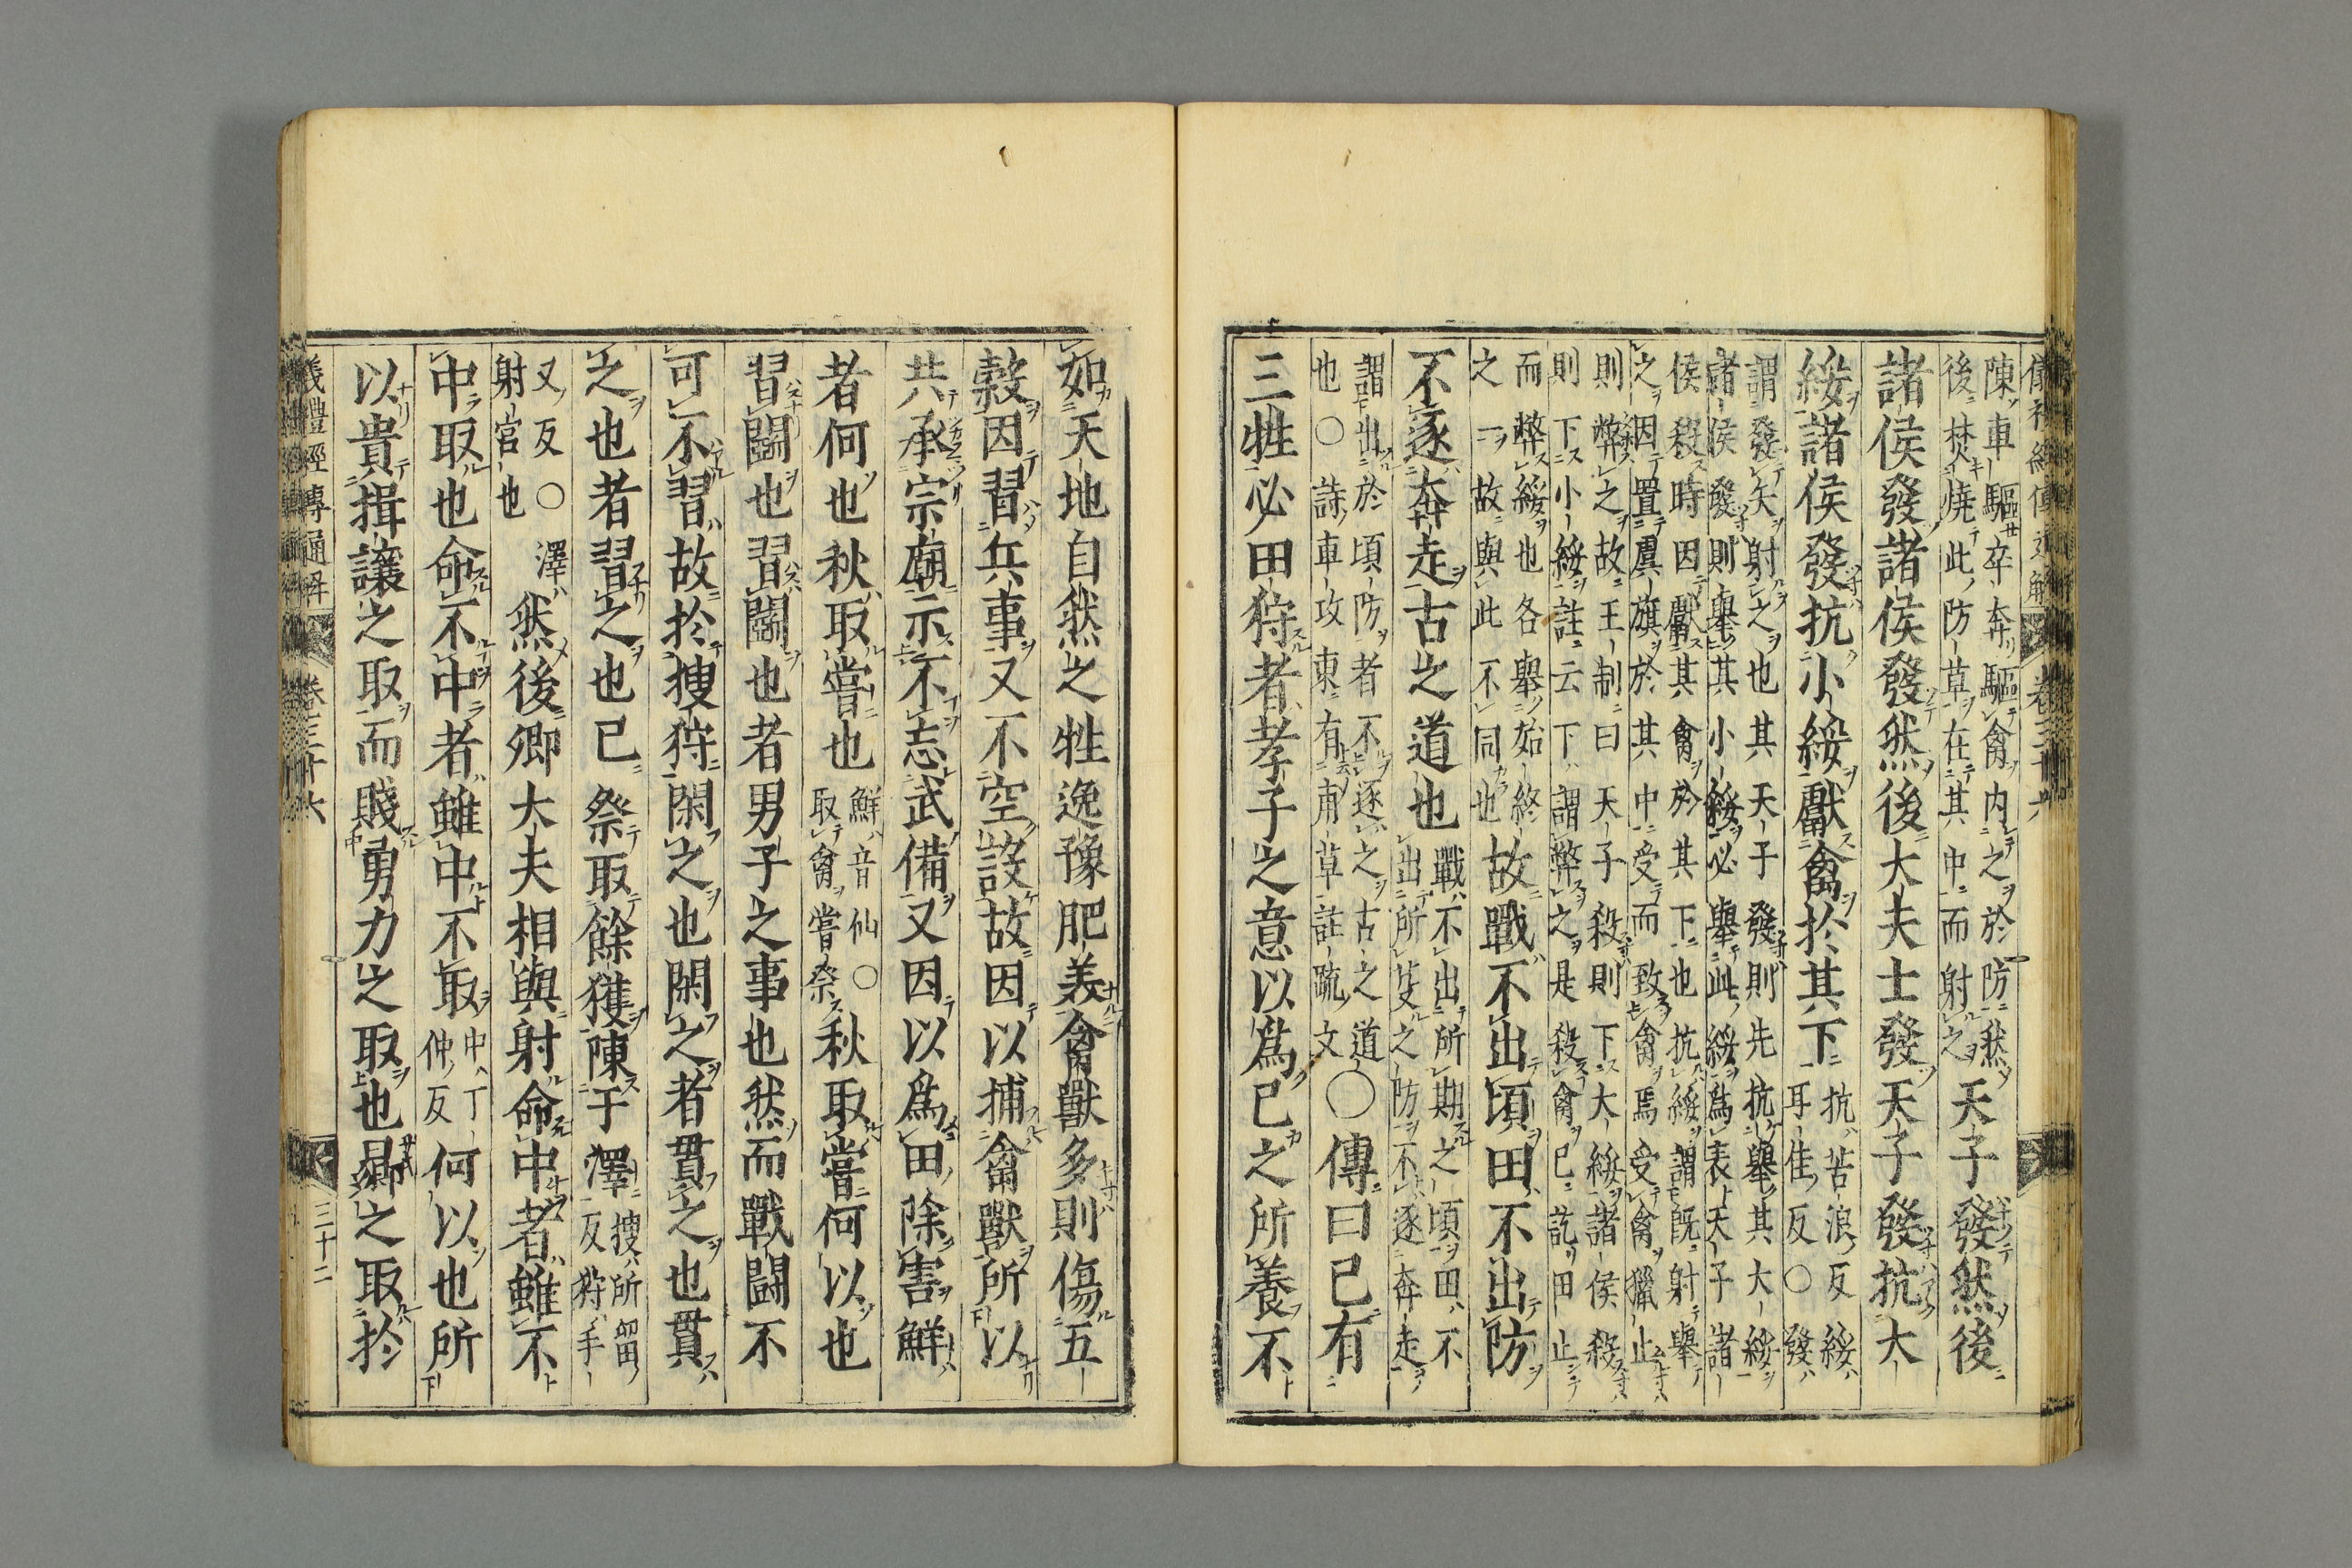 儀禮經傳通解 卷三十六
陳車驅卒奔驅禽内之於防然
後焚燒此防草在其中而射之
天子發然後
諸侯發諸侯發然後大夫士發天子發抗大
綏諸侯發抗小綏獻禽於其下
抗苦浪反綏
耳隹反〇發
謂發矢射之也其天子發則先抗舉其大綏
諸侯發則舉其小綏必舉此綏爲表天子諸
侯殺時因獻其禽於其下也抗綏謂既射舉
之因置虞旗於其中受而致禽焉受禽獵止
則弊之故王制曰天子殺則下大綏諸侯殺
則下小綏註云下謂弊之是殺禽已訖田止
而弊綏也各舉始終
之一故與此不同也
故戰不出頃田不出防
不逐奔走古之道也
戰不出所期之頃田不
出所芟之防不逐奔走
謂出於頃防者不逐之古之道
也〇詩車攻東有甫草註疏文
〇傳曰已有
三牲必田狩者孝子之意以爲已之所養不
如天地自然之牲逸豫肥美禽獸多則傷五
穀因習兵事又不空設故因以捕禽獸所以
共承宗廟示不忘武備又因以爲田除害鮮
者何也秋取嘗也
鮮音仙〇
取禽嘗祭
秋取嘗何以也
習鬬也習鬬也者男子之事也然而戰鬬不
可不習故於搜狩閑之也閑之者貫之也貫
之也者習之也已祭取餘獲陳于澤
搜所留
反狩手
又反〇澤
射宫也
然後卿大夫相與射命中者雖不
中取也命不中者雖中不取
中丁
仲反
何以也所
以貴揖讓之取而賤勇力之取也曏之取於
儀禮經傳通解 卷三十六 三十二